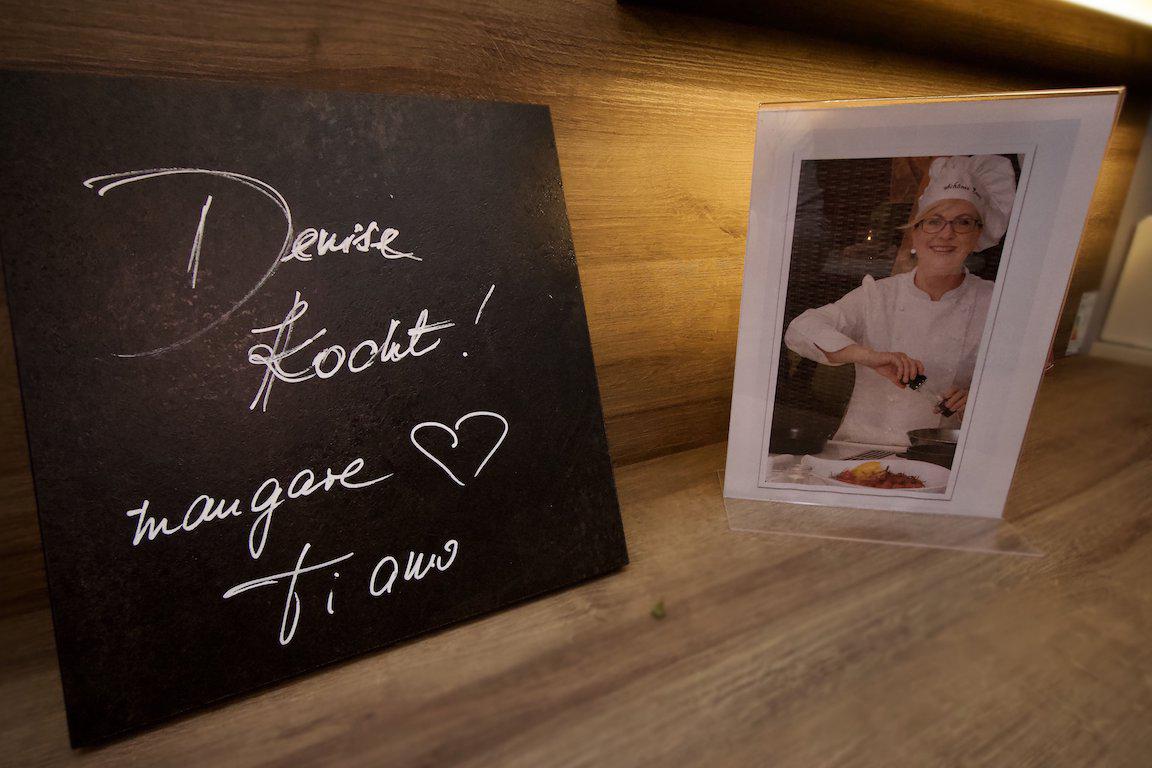 Denise
Kocht!
mangare
Ti amo